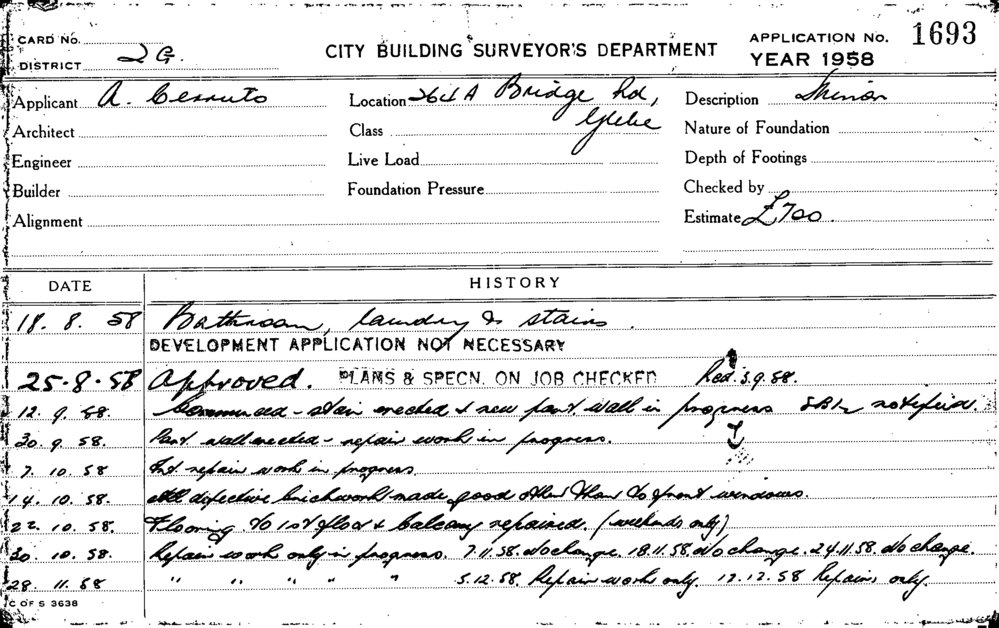 CARD No.
DISTRICT 2 G.
CITY BUILDING SURVEYOR'S DEPARTMENT
APPLICATION No. 1693
YEAR 1958
Applicant A. Cerruto
Location 264A Bridge Rd,
Glebe
Description Minor
Architect
Class
Nature of Foundation
Engineer
Live Load
Depth of Footings
Builder
Foundation Pressure
Checked by
Alignment
Estimate £700.
DATE HISTORY
18. 8. 58 Bathroom, laundry & stairs.
DEVELOPMENT APPLICATION NOT NECESSARY
25.8.58 Approved. PLANS & SPECN. ON JOB CHECKED Rec. 3.9.58.
12. 9. 58. Commenced - stair erected & new part wall in progress notified.
30. 9. 58. Part wall erected - repair work in progress.
7. 10. 58 Int repair work in progress
14. 10. 58. All defective brickwork made good other than to front windows.
22. 10. 58. Flooring to 1st floor & balcony repaired. (weekends only)
30. 10. 58. Repair work only in progress. 7.11.58. No change. 18.11.58. No change. 24.11.58. No change.
28. 11. 58 " " " " " 5.12.58. Repair work only. 17.12.58 Repairs only.
C OF S 3638